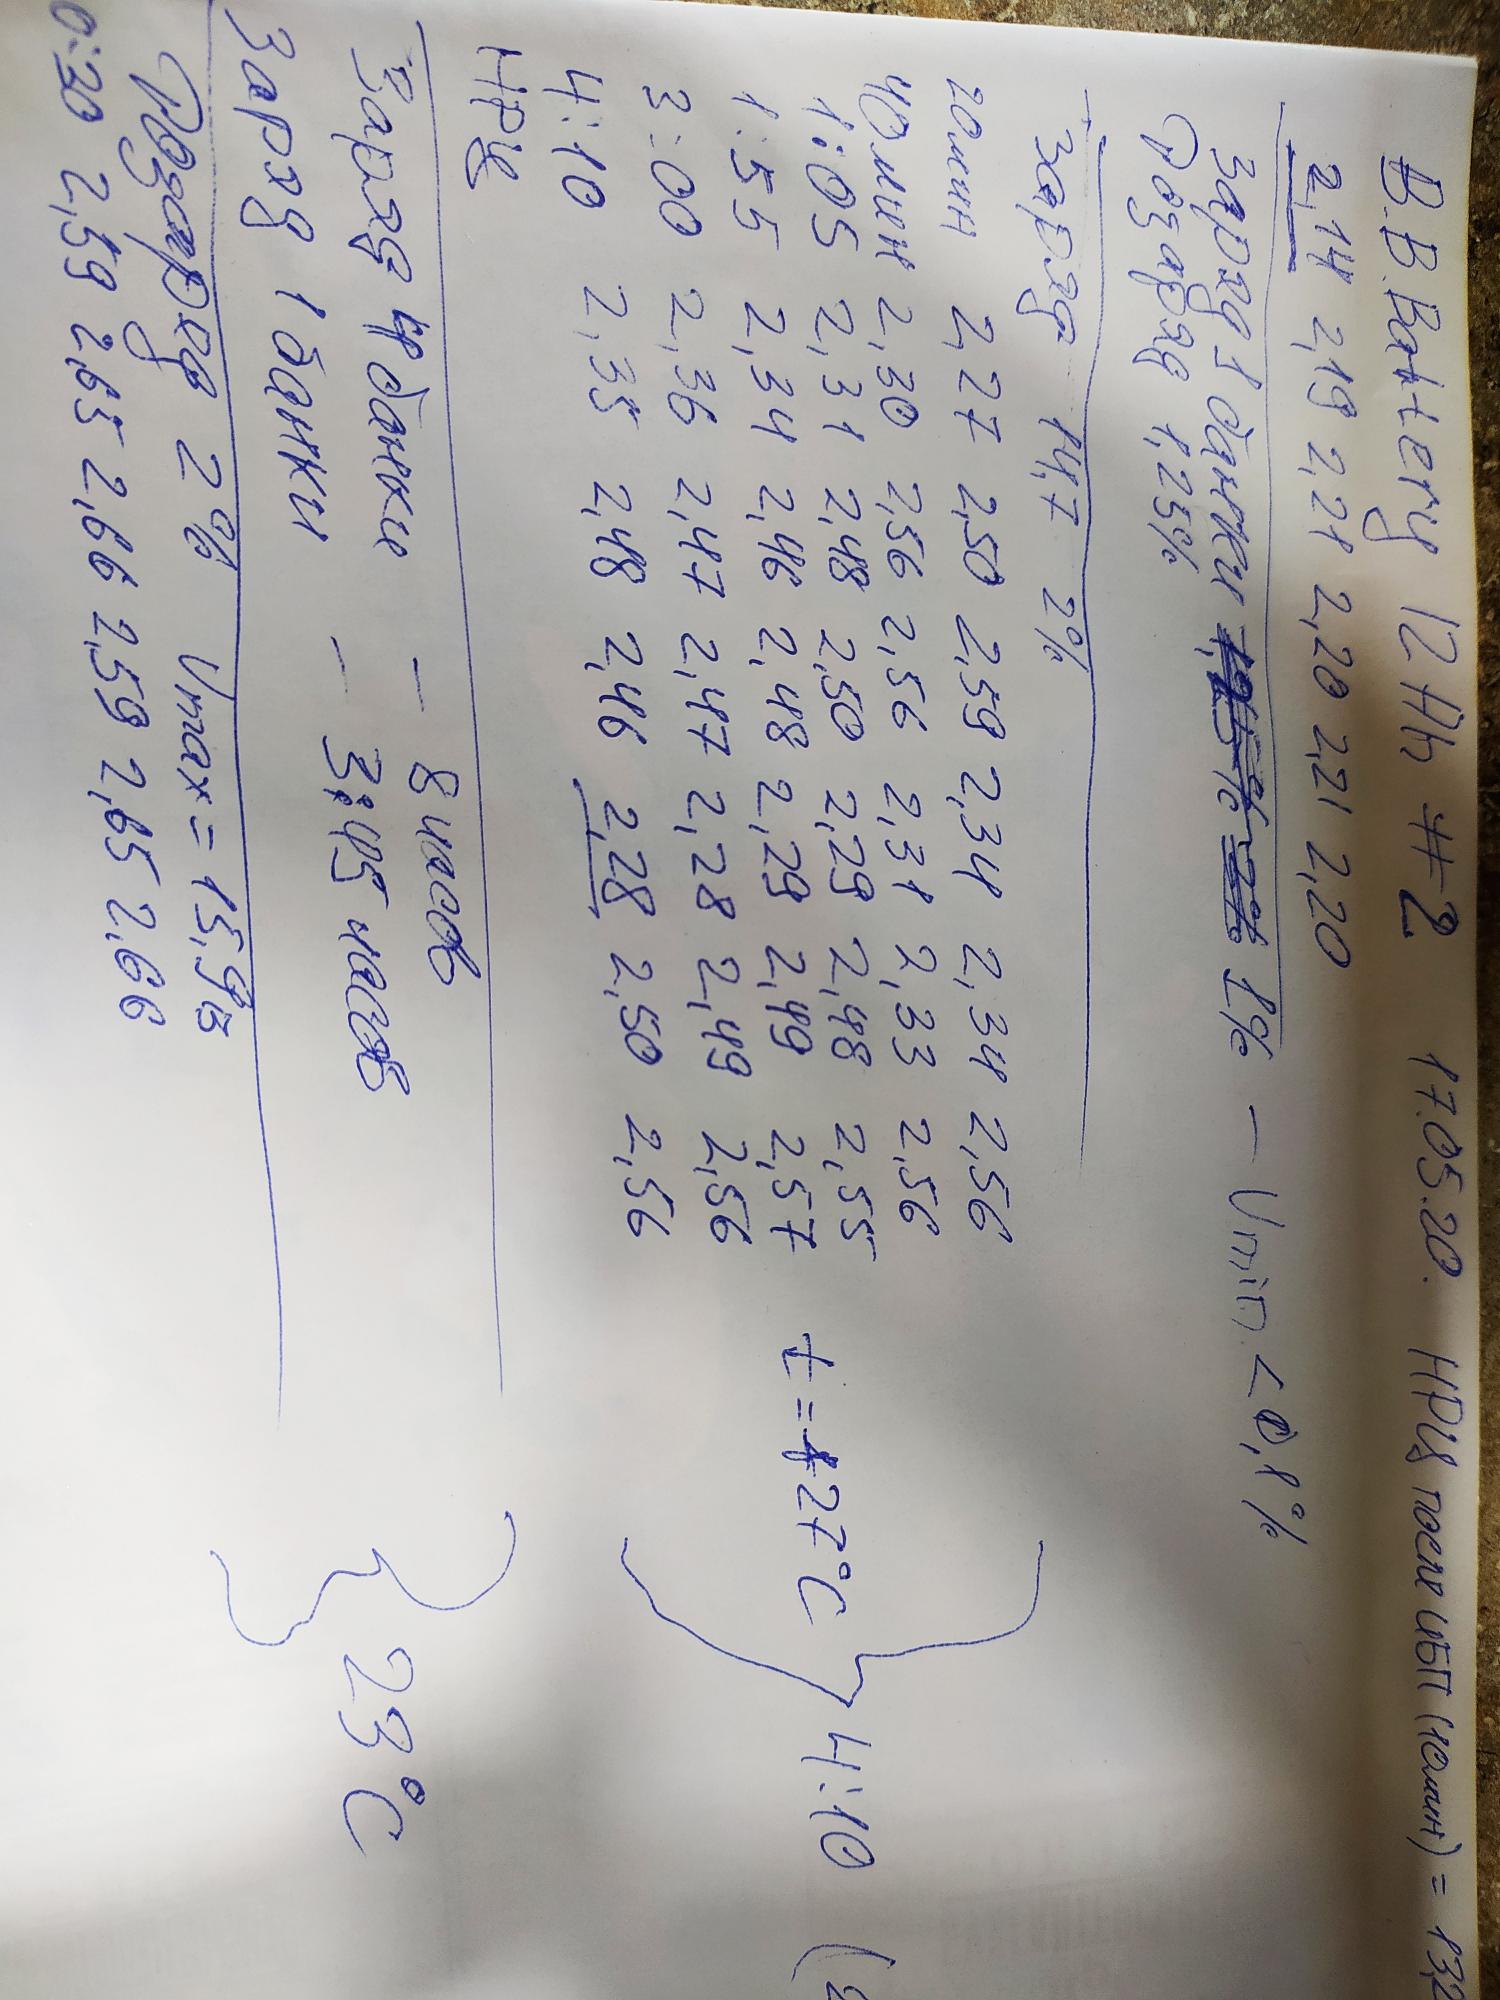 B.B.Battery 12Ah #2 17.05.20. НРЦ после ИБП (10мин) = 13,2
2,14 2,19 2,21 2,20 2,21 2,20
Заряд 1 банки 1% – Umin < 0,1%
Дозаряд 1,25%
Заряд 14,7 2%
20мин 2,27 2,50 2,59 2,34 2,34 2,56
40мин 2,30 2,56 2,56 2,31 2,33 2,56
1:05 2,31 2,48 2,50 2,29 2,48 2,55
1:55 2,34 2,46 2,48 2,29 2,49 2,57 t = +27°C
3:00 2,36 2,47 2,47 2,28 2,49 2,56
4:10 2,35 2,48 2,46 2,28 2,50 2,56
4:10 (2
НРЦ
Заряд 4 банки – 8 часов
Заряд 1 банки – 3:45 часов
23°C
Дозаряд 2% Umax = 15,9в
0:30 2,59 2,65 2,66 2,59 2,65 2,66